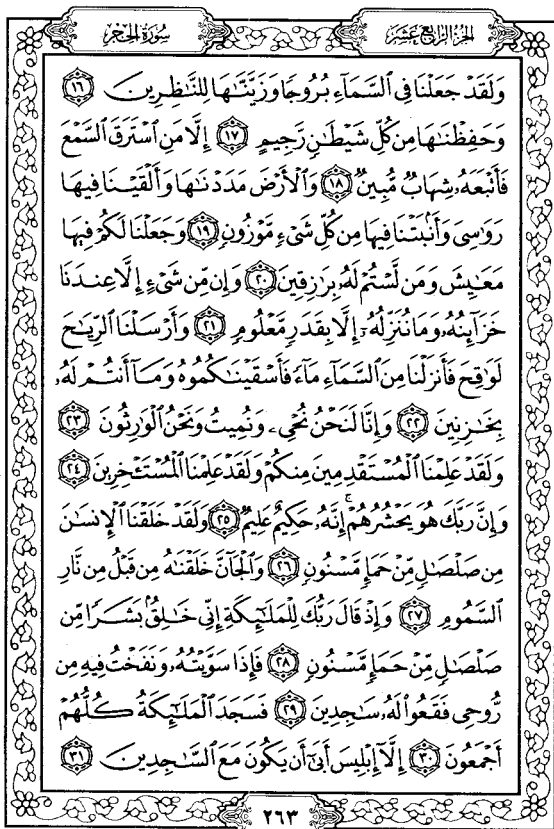 سُورَةُ الحِجْرِ
الجُزْءُ الرَّابِعَ عَشَرَ
وَلَقَدْ جَعَلْنَا فِى ٱلسَّمَآءِ بُرُوجًا وَزَيَّنَّـٰهَا لِلنَّـٰظِرِينَ ١٦
وَحَفِظْنَـٰهَا مِن كُلِّ شَيْطَـٰنٍ رَّجِيمٍ ١٧ إِلَّا مَنِ ٱسْتَرَقَ ٱلسَّمْعَ
فَأَتْبَعَهُۥ شِهَابٌ مُّبِينٌ ١٨ وَٱلْأَرْضَ مَدَدْنَـٰهَا وَأَلْقَيْنَا فِيهَا
رَوَٰسِىَ وَأَنۢبَتْنَا فِيهَا مِن كُلِّ شَىْءٍ مَّوْزُونٍ ١٩ وَجَعَلْنَا لَكُمْ فِيهَا
مَعَـٰيِشَ وَمَن لَّسْتُمْ لَهُۥ بِرَٰزِقِينَ ٢٠ وَإِن مِّن شَىْءٍ إِلَّا عِندَنَا
خَزَآئِنُهُۥ وَمَا نُنَزِّلُهُۥٓ إِلَّا بِقَدَرٍ مَّعْلُومٍ ٢١ وَأَرْسَلْنَا ٱلرِّيَـٰحَ
لَوَٰقِحَ فَأَنزَلْنَا مِنَ ٱلسَّمَآءِ مَآءً فَأَسْقَيْنَـٰكُمُوهُ وَمَآ أَنتُمْ لَهُۥ
بِخَـٰزِنِينَ ٢٢ وَإِنَّا لَنَحْنُ نُحْىِۦ وَنُمِيتُ وَنَحْنُ ٱلْوَٰرِثُونَ ٢٣
وَلَقَدْ عَلِمْنَا ٱلْمُسْتَقْدِمِينَ مِنكُمْ وَلَقَدْ عَلِمْنَا ٱلْمُسْتَـْٔخِرِينَ ٢٤
وَإِنَّ رَبَّكَ هُوَ يَحْشُرُهُمْ ۚ إِنَّهُۥ حَكِيمٌ عَلِيمٌ ٢٥ وَلَقَدْ خَلَقْنَا ٱلْإِنسَـٰنَ
مِن صَلْصَـٰلٍ مِّنْ حَمَإٍ مَّسْنُونٍ ٢٦ وَٱلْجَآنَّ خَلَقْنَـٰهُ مِن قَبْلُ مِن نَّارِ
ٱلسَّمُومِ ٢٧ وَإِذْ قَالَ رَبُّكَ لِلْمَلَـٰٓئِكَةِ إِنِّى خَـٰلِقٌۢ بَشَرًا مِّن
صَلْصَـٰلٍ مِّنْ حَمَإٍ مَّسْنُونٍ ٢٨ فَإِذَا سَوَّيْتُهُۥ وَنَفَخْتُ فِيهِ مِن
رُّوحِى فَقَعُوا۟ لَهُۥ سَـٰجِدِينَ ٢٩ فَسَجَدَ ٱلْمَلَـٰٓئِكَةُ كُلُّهُمْ
أَجْمَعُونَ ٣٠ إِلَّآ إِبْلِيسَ أَبَىٰٓ أَن يَكُونَ مَعَ ٱلسَّـٰجِدِينَ ٣١
٢٦٣